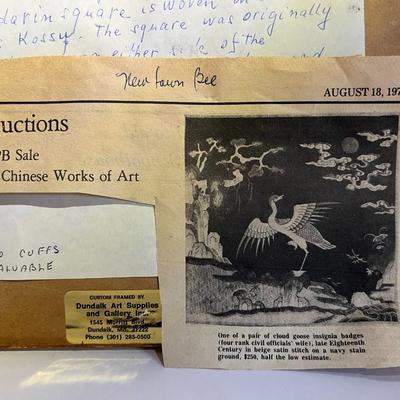 darin square is woven on
s Kossu. The square was originally
on either side of the
New town Bee
AUGUST 18, 197
uctions
PB Sale
Chinese Works of Art
O CUFFS
ALUABLE
CUSTOM FRAMED BY
Dundalk Art Supplies
and Gallery, Inc.
1545 Merritt Blvd.
Dundalk, Md. 21222
Phone (301) 285-0503
One of a pair of cloud goose insignia badges
(four rank civil officials' wife), late Eighteenth
Century in beige satin stitch on a navy stain
ground, $250, half the low estimate.